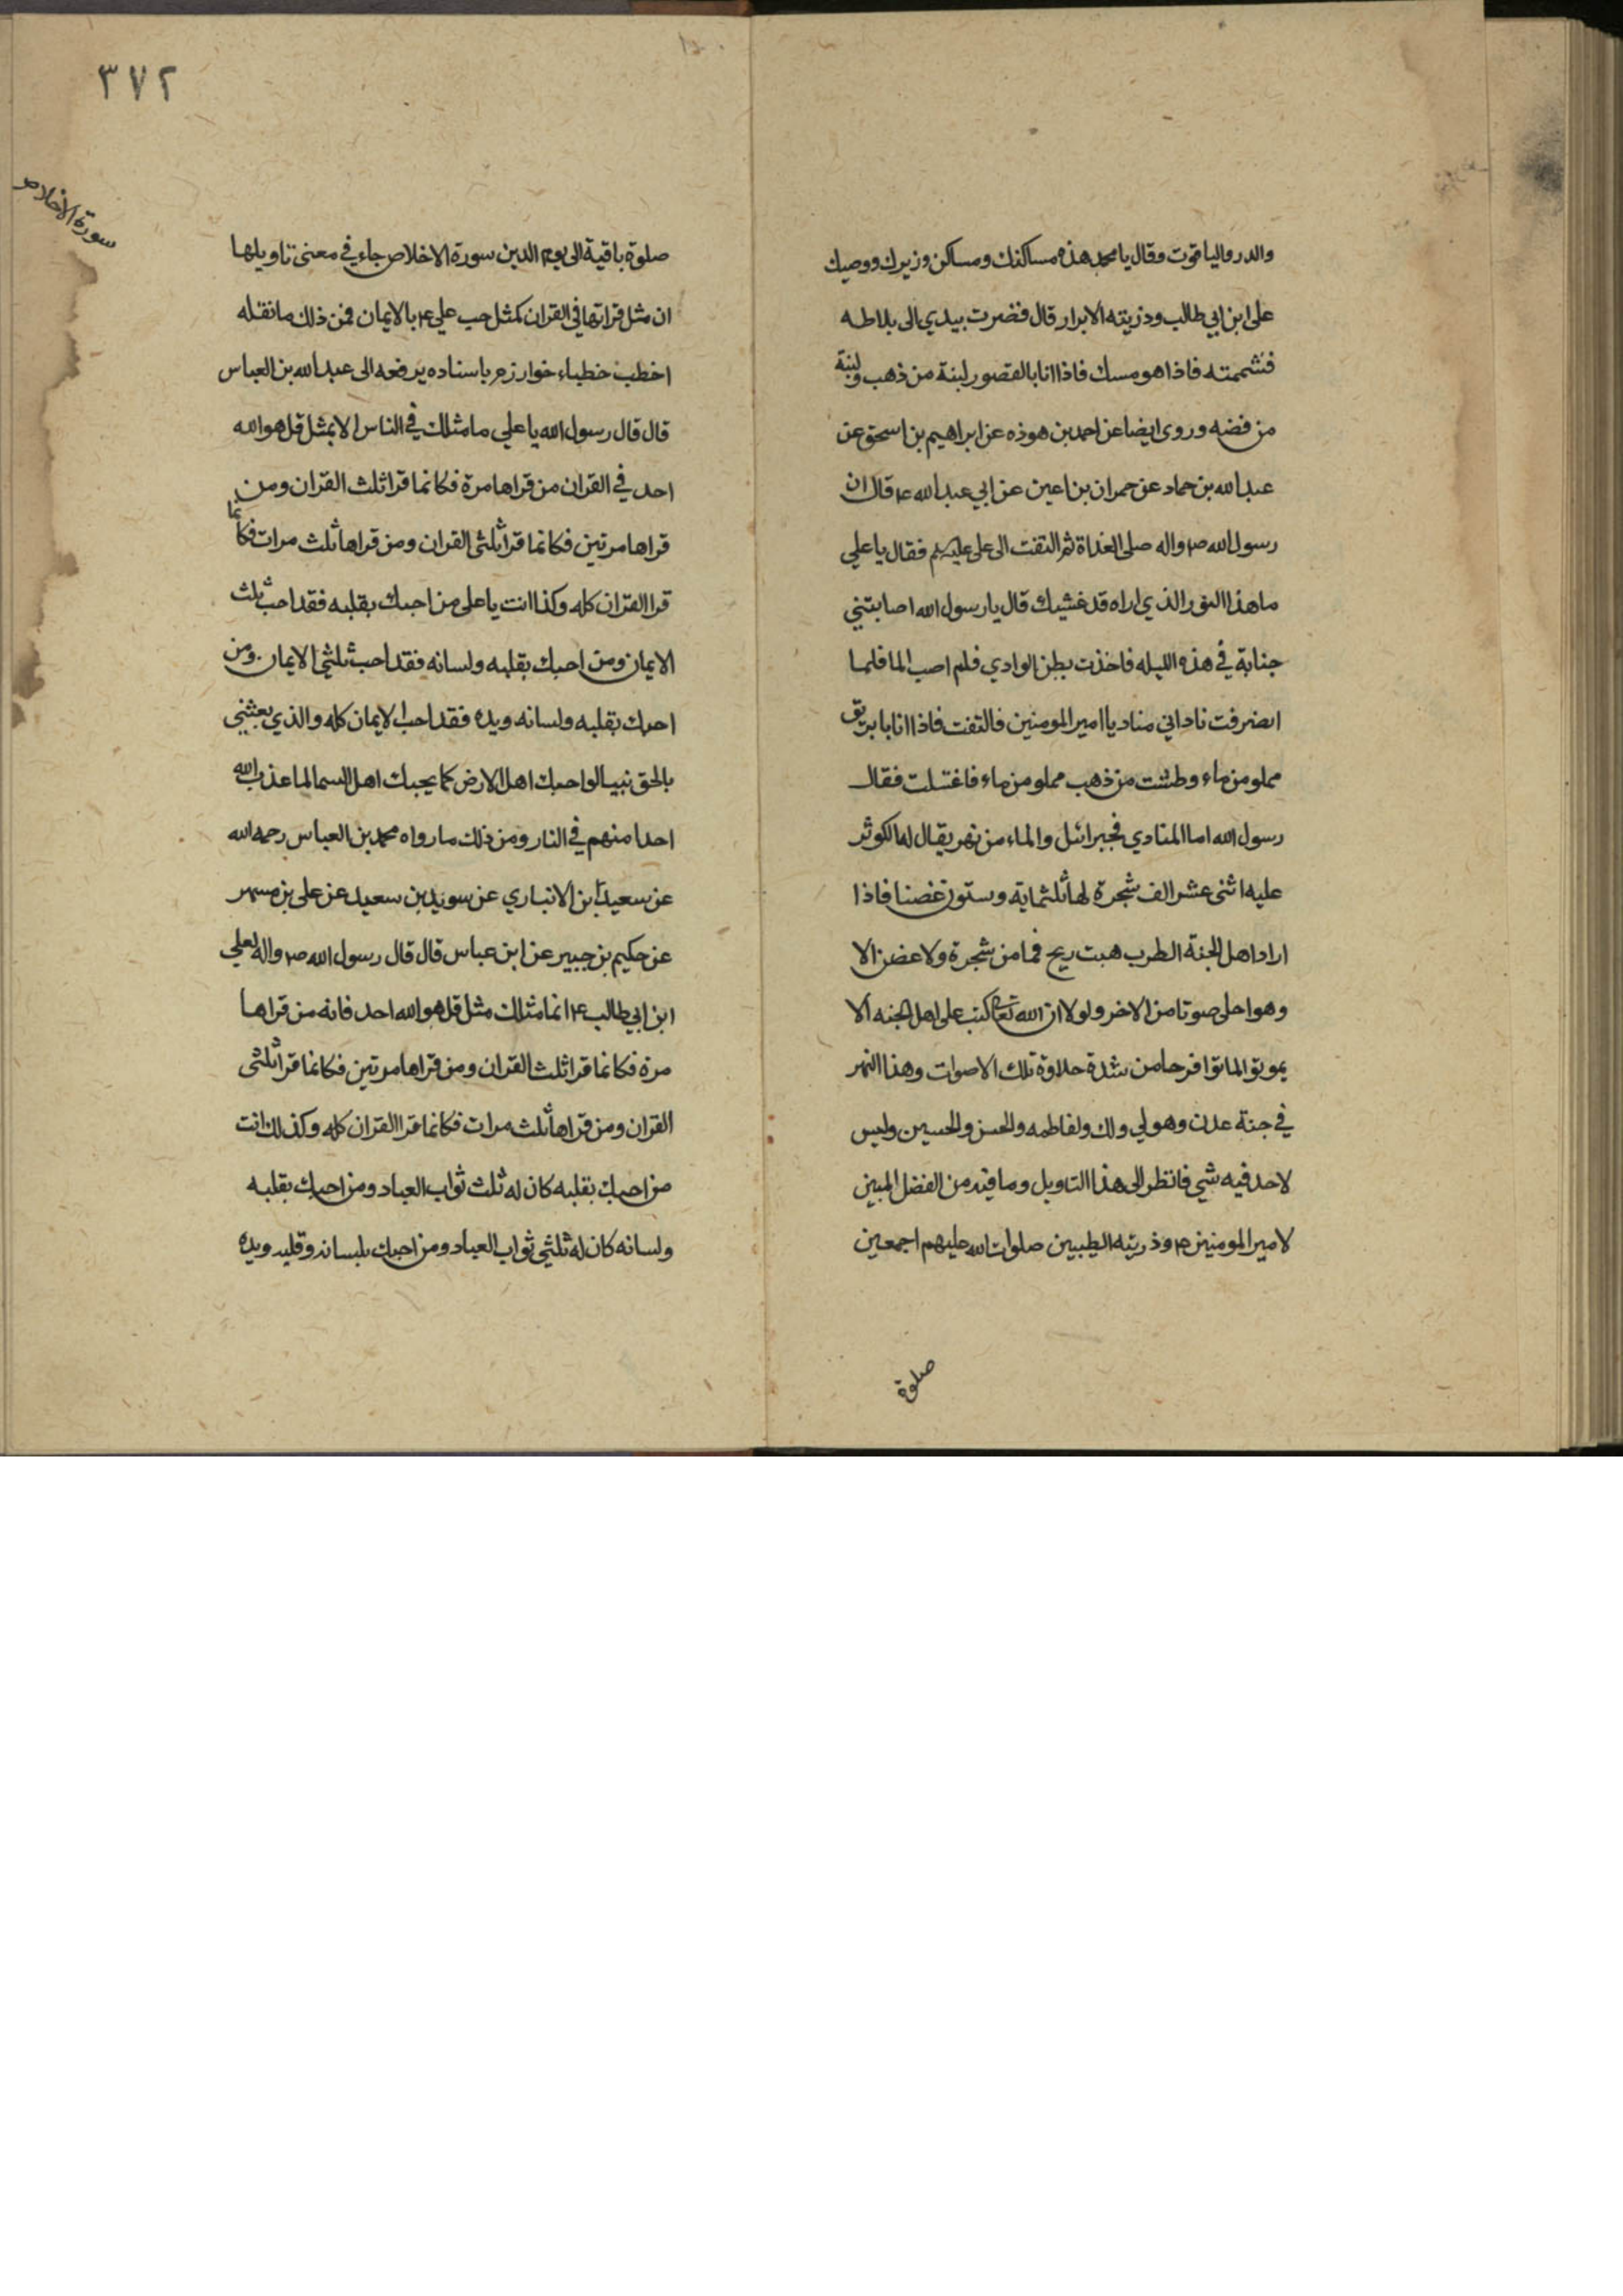 والدر والياقوت وقال يا محمد هذه مساكنك ومساكن وزيرك ووصيك
على ابن ابي طالب وذريته الابرار قال فضربت بيدي الى بلاطه
فشممته فاذا هو مسك فاذا انا بالقصور لبنة من ذهب ولبنة
من فضه وروى ايضا عن احمد بن هوذه عن ابراهيم بن اسحق عن
عبد الله بن حماد عن حمران بن اعين عن ابي عبد الله ع قال ان
رسول الله ص واله صلى الغداة ثم التفت الى على عليه فقال يا علي
ما هذا النور الذي اراه قد غشيك قال يا رسول الله اصابتني
جنابة في هذه الليله فاخذت بطن الوادي فلم اصب الما فلما
انصرفت ناداني مناد يا امير المومنين فالتفت فاذا انا بابريق
مملو من ماء وطشت من ذهب مملو من ماء فاغتسلت فقال
رسول الله اما المنادي فجبرائيل والماء من نهر يقال له الكوثر
عليه اثنى عشر الف شجرة لها ثلثماية وستون غصنا فاذا
اراد اهل الجنة الطرب هبت ريح فما من شجرة ولا غصن الا
وهو احلى صوتا من الاخر ولولا ان الله كتب على اهل الجنه الا
يموتوا لماتوا فرحا من شدة حلاوة تلك الاصوات وهذا النهر
في جنة عدن وهو لي ولك ولفاطمه والحسن والحسين وليس
لاحد فيه شي فانظر الى هذا التاويل وما فيه من الفضل المبين
لامير المومنين وذريته الطيبين صلوات الله عليهم اجمعين
صلوة
٣٧٢
سورة الاخلاص
صلوة باقية الى يوم الدين سورة الاخلاص جاء في معنى تاويلها
ان مثل قراتها في القران كمثل حب علي ع بالايمان فمن ذلك ما نقله
اخطب خطباء خوارزم باسناده يرفعه الى عبد الله بن العباس
قال قال رسول الله يا علي ما مثلك في الناس الا بمثل قل هو الله
احد في القران من قراها مرة فكانما قرا ثلث القران ومن
قراها مرتين فكانما قرا ثلثى القران ومن قراها ثلث مرات فكانما
قرا القران كله وكذا انت يا على من احبك بقلبه فقد احب ثلث
الايمان ومن احبك بقلبه ولسانه فقد احب ثلثى الايمان ومن
احبك بقلبه ولسانه ويده فقد احب الايمان كله والذي بعثني
بالحق نبيا لو احبك اهل الارض كما يحبك اهل السما لما عذب الله
احدا منهم في النار ومن ذلك ما رواه محمد بن العباس رحمه الله
عن سعيد بن الانباري عن سويد بن سعيد عن على بن مسهر
عن حكيم بن جبير عن ابن عباس قال قال رسول الله ص واله لعلي
ابن ابي طالب ع انما مثلك مثل قل هو الله احد فانه من قراها
مرة فكانما قرا ثلث القران ومن قراها مرتين فكانما قرا ثلثى
القران ومن قراها ثلث مرات فكانما قرا القران كله وكذلك انت
من احبك بقلبه كان له ثلث ثواب العباد ومن احبك بقلبه
ولسانه كان له ثلثي ثواب العباد ومن احبك بلسانه وقلبه ويده